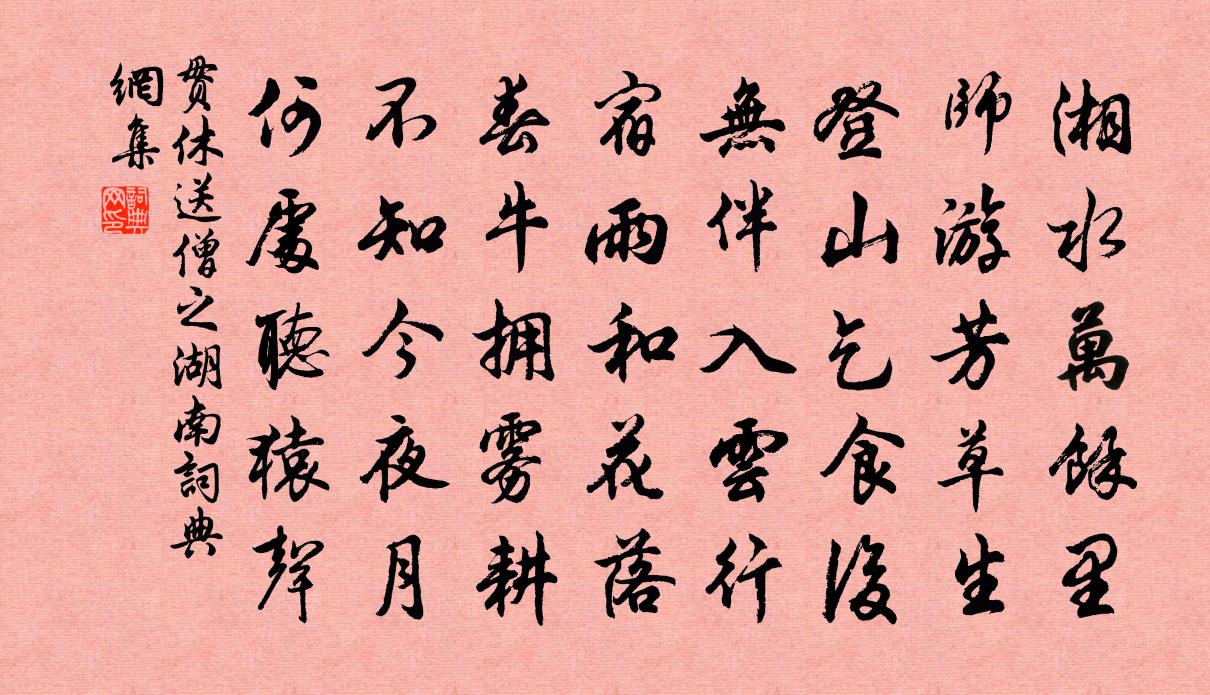 湘水萬餘里
師游芳草生
登山乞食後
無伴入雲行
宿雨和花落
春牛拥雾耕
不知今夜月
何處聽猿聲
贯休送僧之湖南詞典
網集
詞典網印